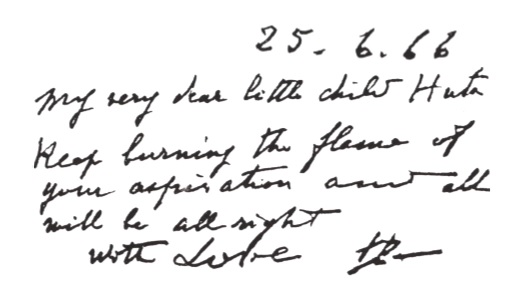 25.6.66
My very dear little child Huta
Keep burning the flame of
your aspiration and all
will be all right
with Love